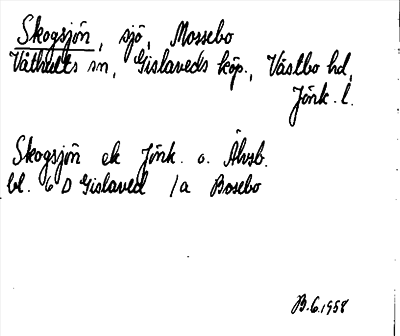 Skogsjön, sjö, Mossebo
Våthults sn, Gislaveds köp., Västbo hd,
Jönk. l.
Skogsjön ek Jönk. o. Älvsb.
bl. 6 D Gislaved /a Bosebo
B. 6. 1958